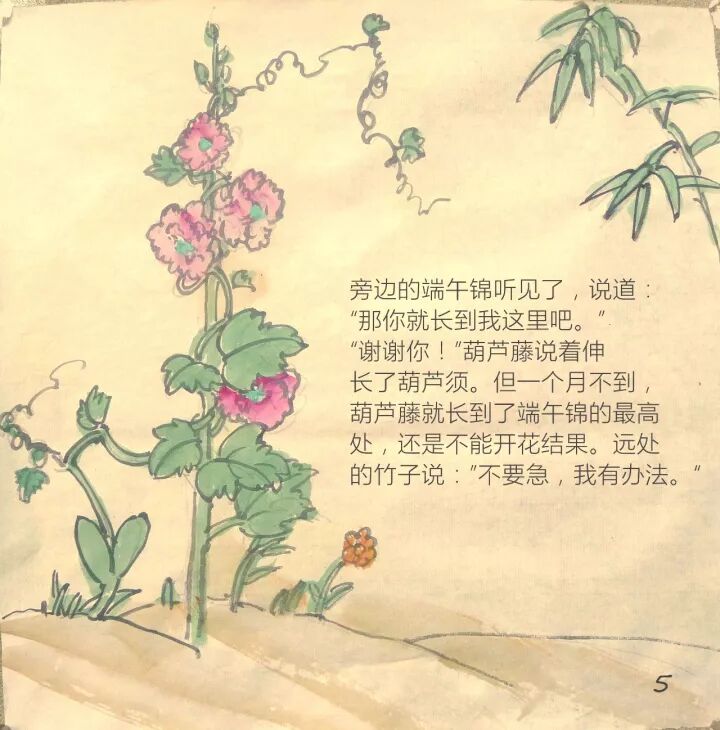 旁边的端午锦听见了，说道：
“那你就长到我这里吧。”
“谢谢你！”葫芦藤说着伸
长了葫芦须。但一个月不到，
葫芦藤就长到了端午锦的最高
处，还是不能开花结果。远处
的竹子说：”不要急，我有办法。“
5